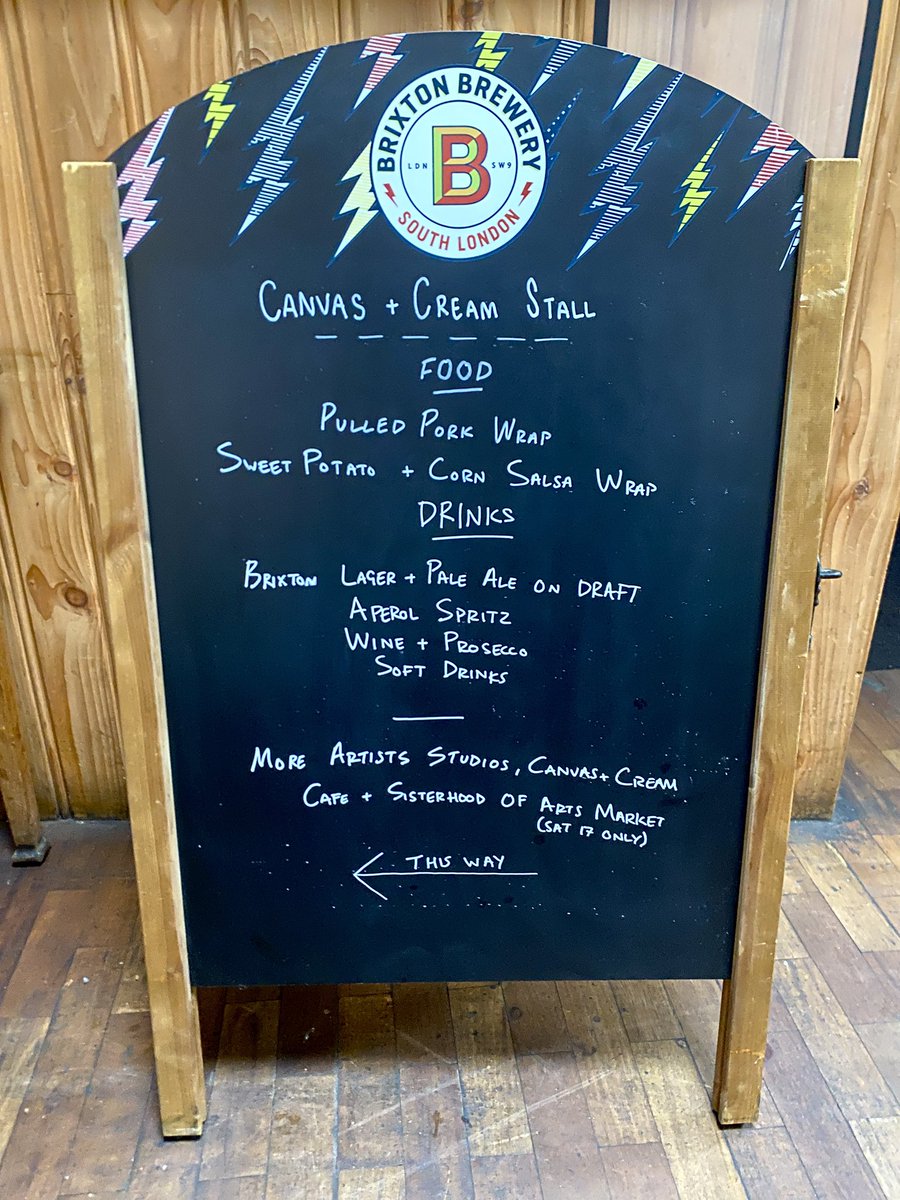 BRIXTON BREWERY
LDN B SW9
SOUTH LONDON
CANVAS + CREAM STALL
FOOD
PULLED PORK WRAP
SWEET POTATO + CORN SALSA WRAP
DRINKS
BRIXTON LAGER + PALE ALE ON DRAFT
APEROL SPRITZ
WINE + PROSECCO
SOFT DRINKS
MORE ARTISTS STUDIOS, CANVAS + CREAM
CAFE + SISTERHOOD OF ARTS MARKET
(SAT 17 ONLY)
THIS WAY